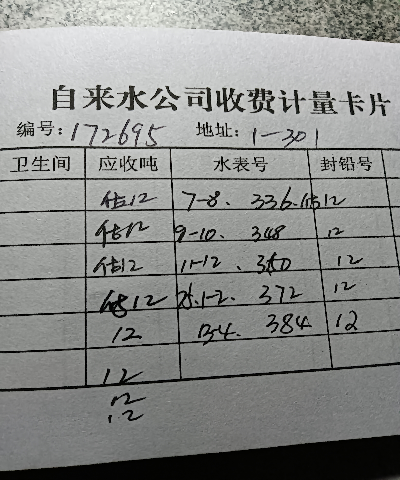 自来水公司收费计量卡片
编号:172695 地址:1-301
卫生间 应收吨 水表号 封铅号
估12 7-8. 336.估12
估12 9-10. 348 12
估12 11-12. 360 12
估12 25.1-2. 372 12
12 3-4. 384 12
12
12
12